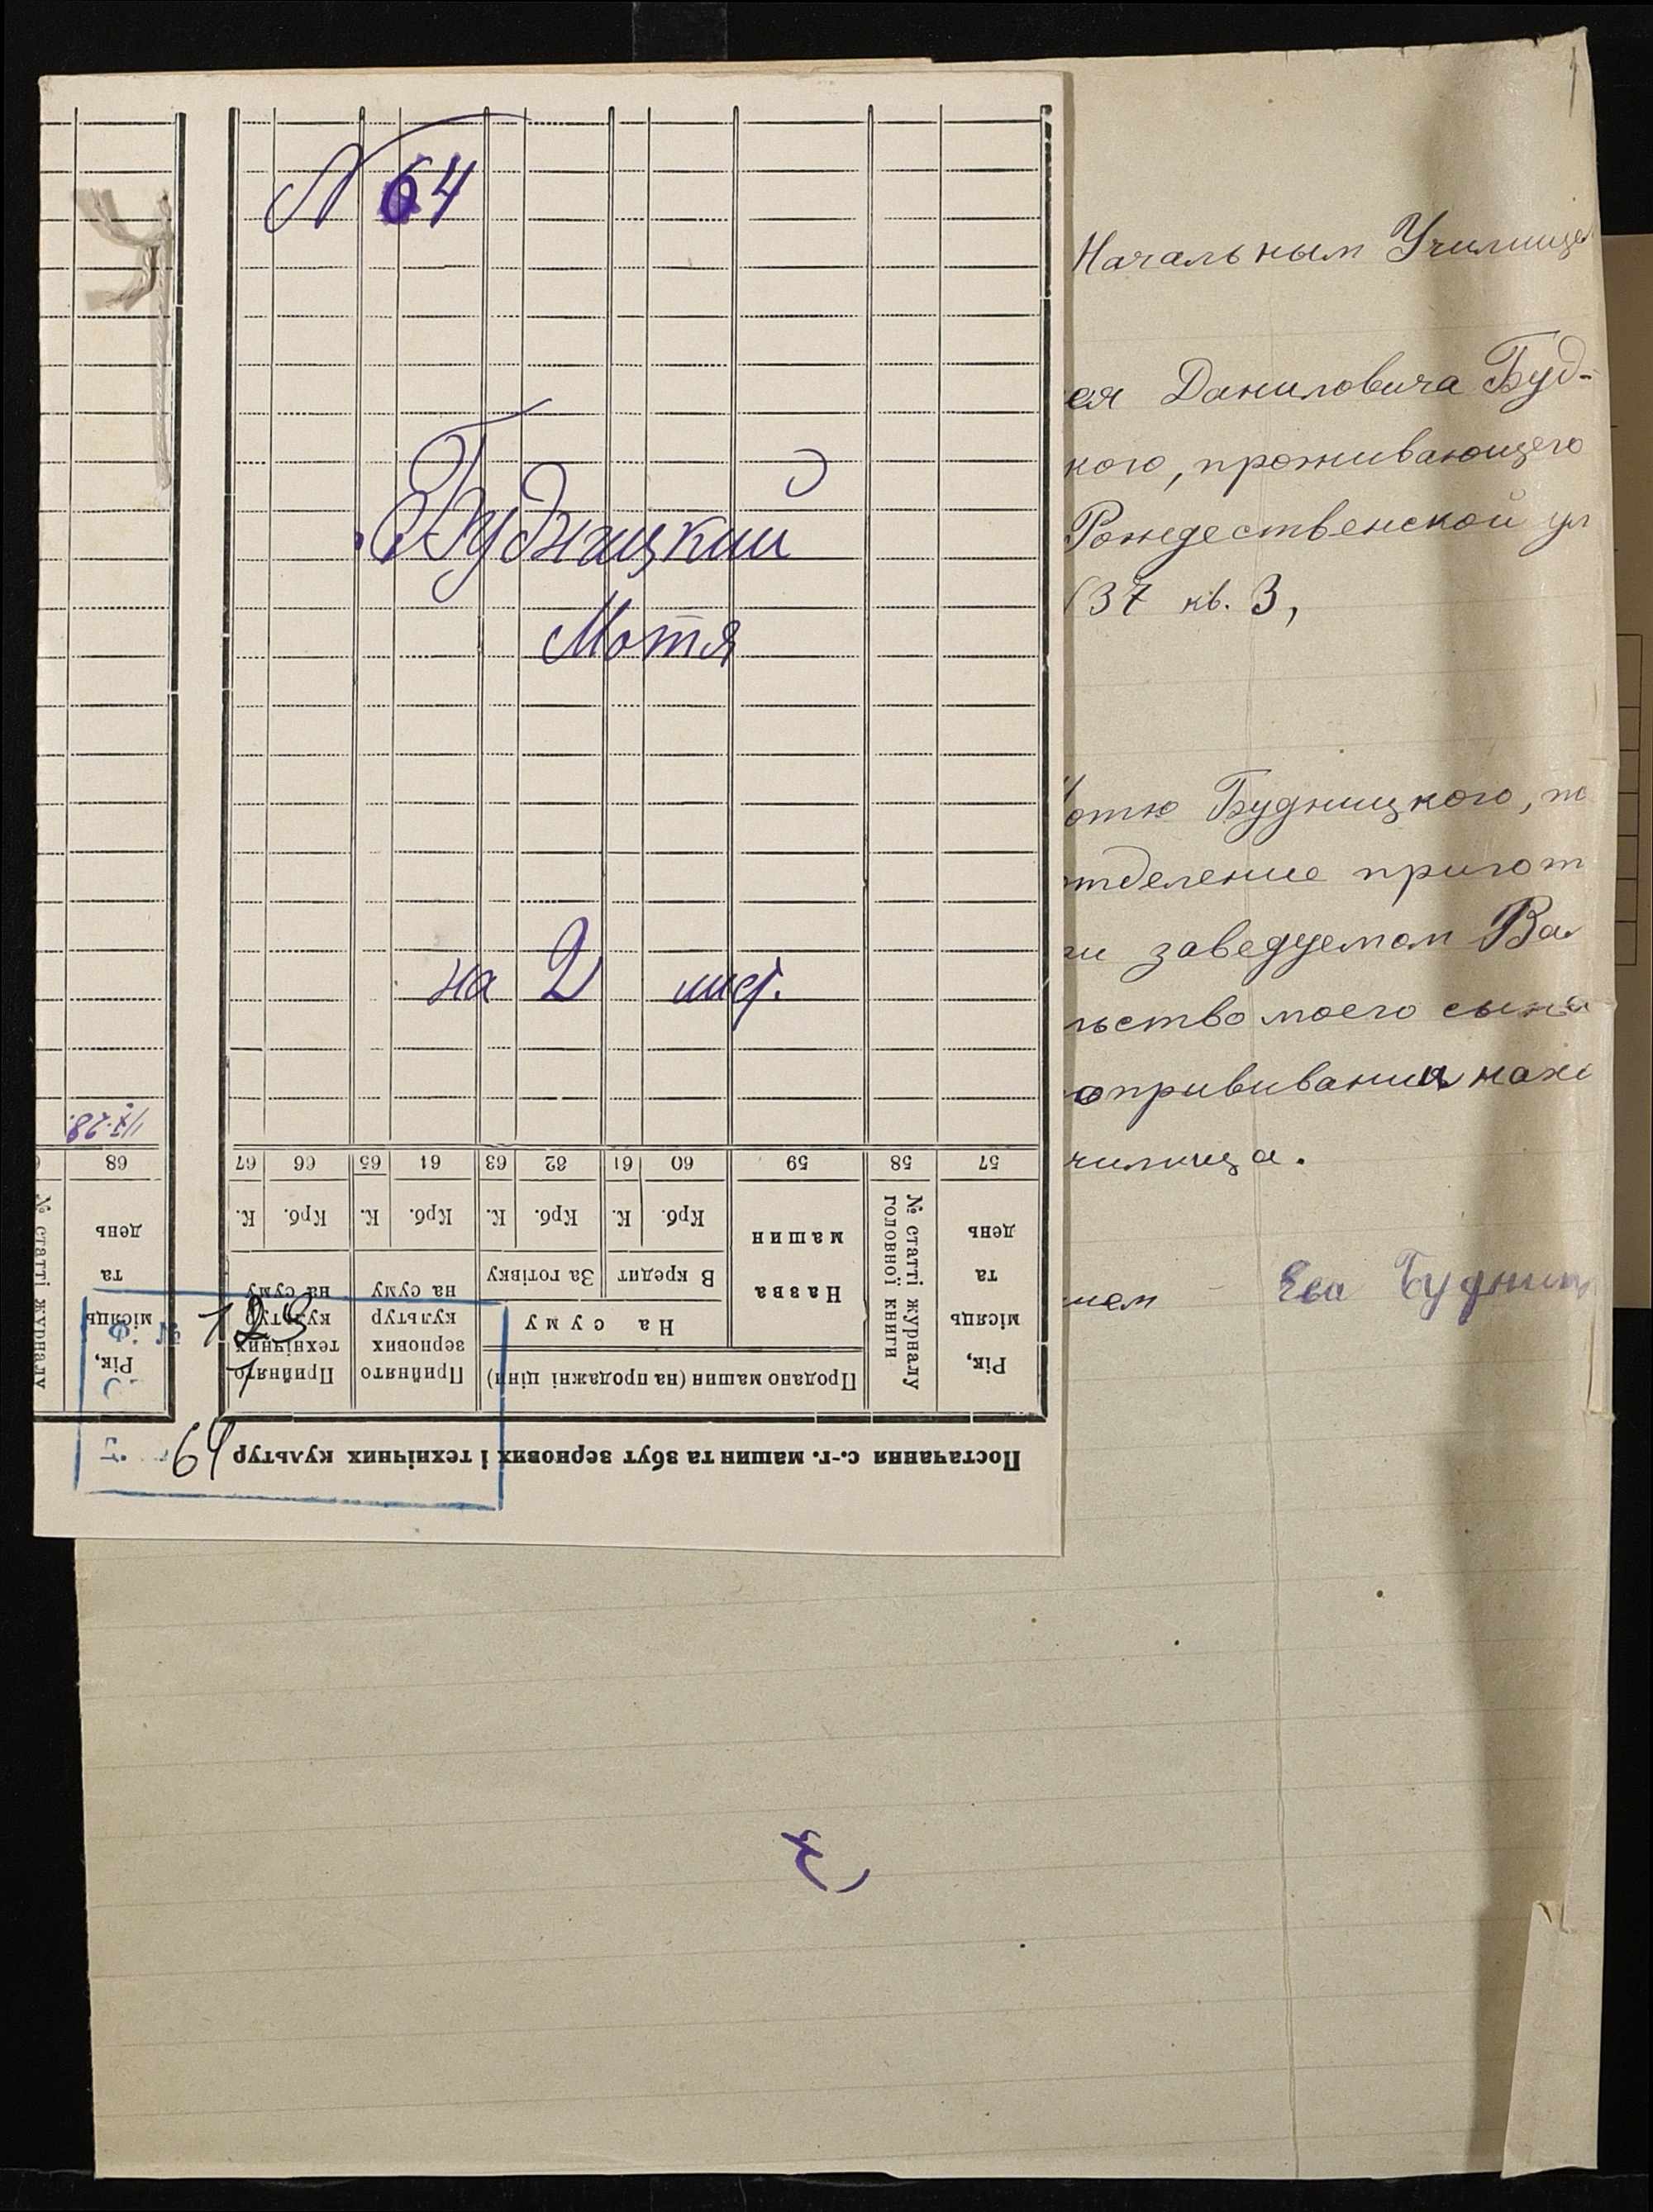 N 64
Будницкий
Мотя
на 2 лист.
Постачання с.-г. машин та збут зернових і технічних культур
Рік, місяць та день
№ статті журналу головної книги
Продано машин (на продажні ціни)
Назва машин
На суму
В кредит
За готівку
Прийнято зернових культур на суму
Прийнято технічних культур на суму
Крб. К. Крб. К. Крб. К. Крб. К.
57 58 59 60 61 62 63 64 65 66 67
Рік, місяць та день
№ статті журналу
68
Ф.
123
1
64
Начальным Училище
ея Даниловича Буд-
кого, проживающего
Рождественской ул
37 кв. 3,
отю Будницкого,
отделение пригот
заведуемом Ва
льство моего сына
оприививания нахо
чилища.
Ева Будниц